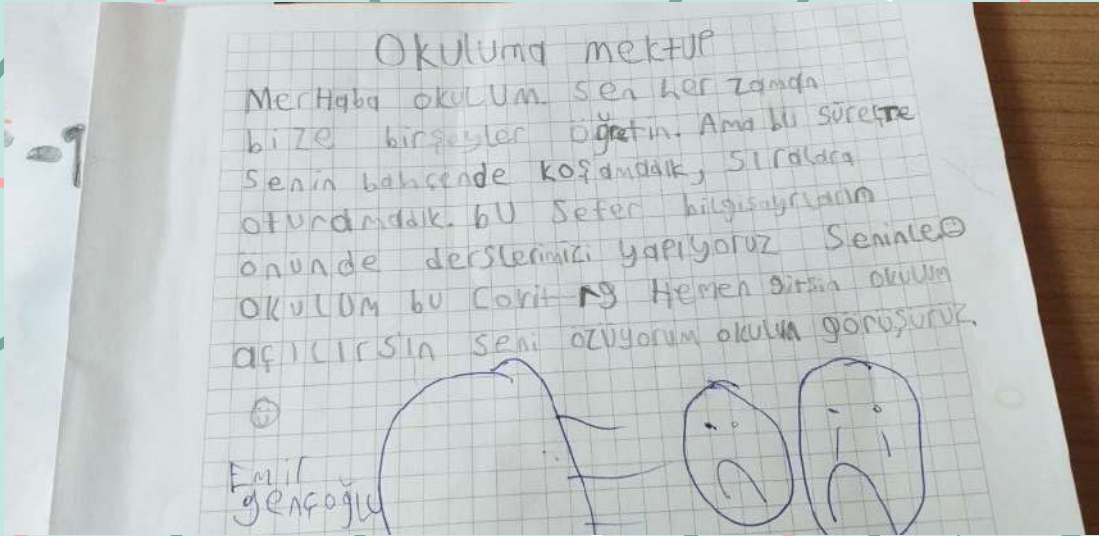 Okuluma mektup
MerHaba okulum. Sen her zaman
bize birşeyler öğretin. Ama bu süreçte
Senin bahcende koşamadık, sıralara
oturamadık. bu Sefer bilgisayrların
önünde derslerimizi yapıyoruz Seninle
OKULUM bu Covit 19 Hemen gitsin okulum
açılırsin seni özüyorum okulum görüşürüz.
Emil
gençoğlu